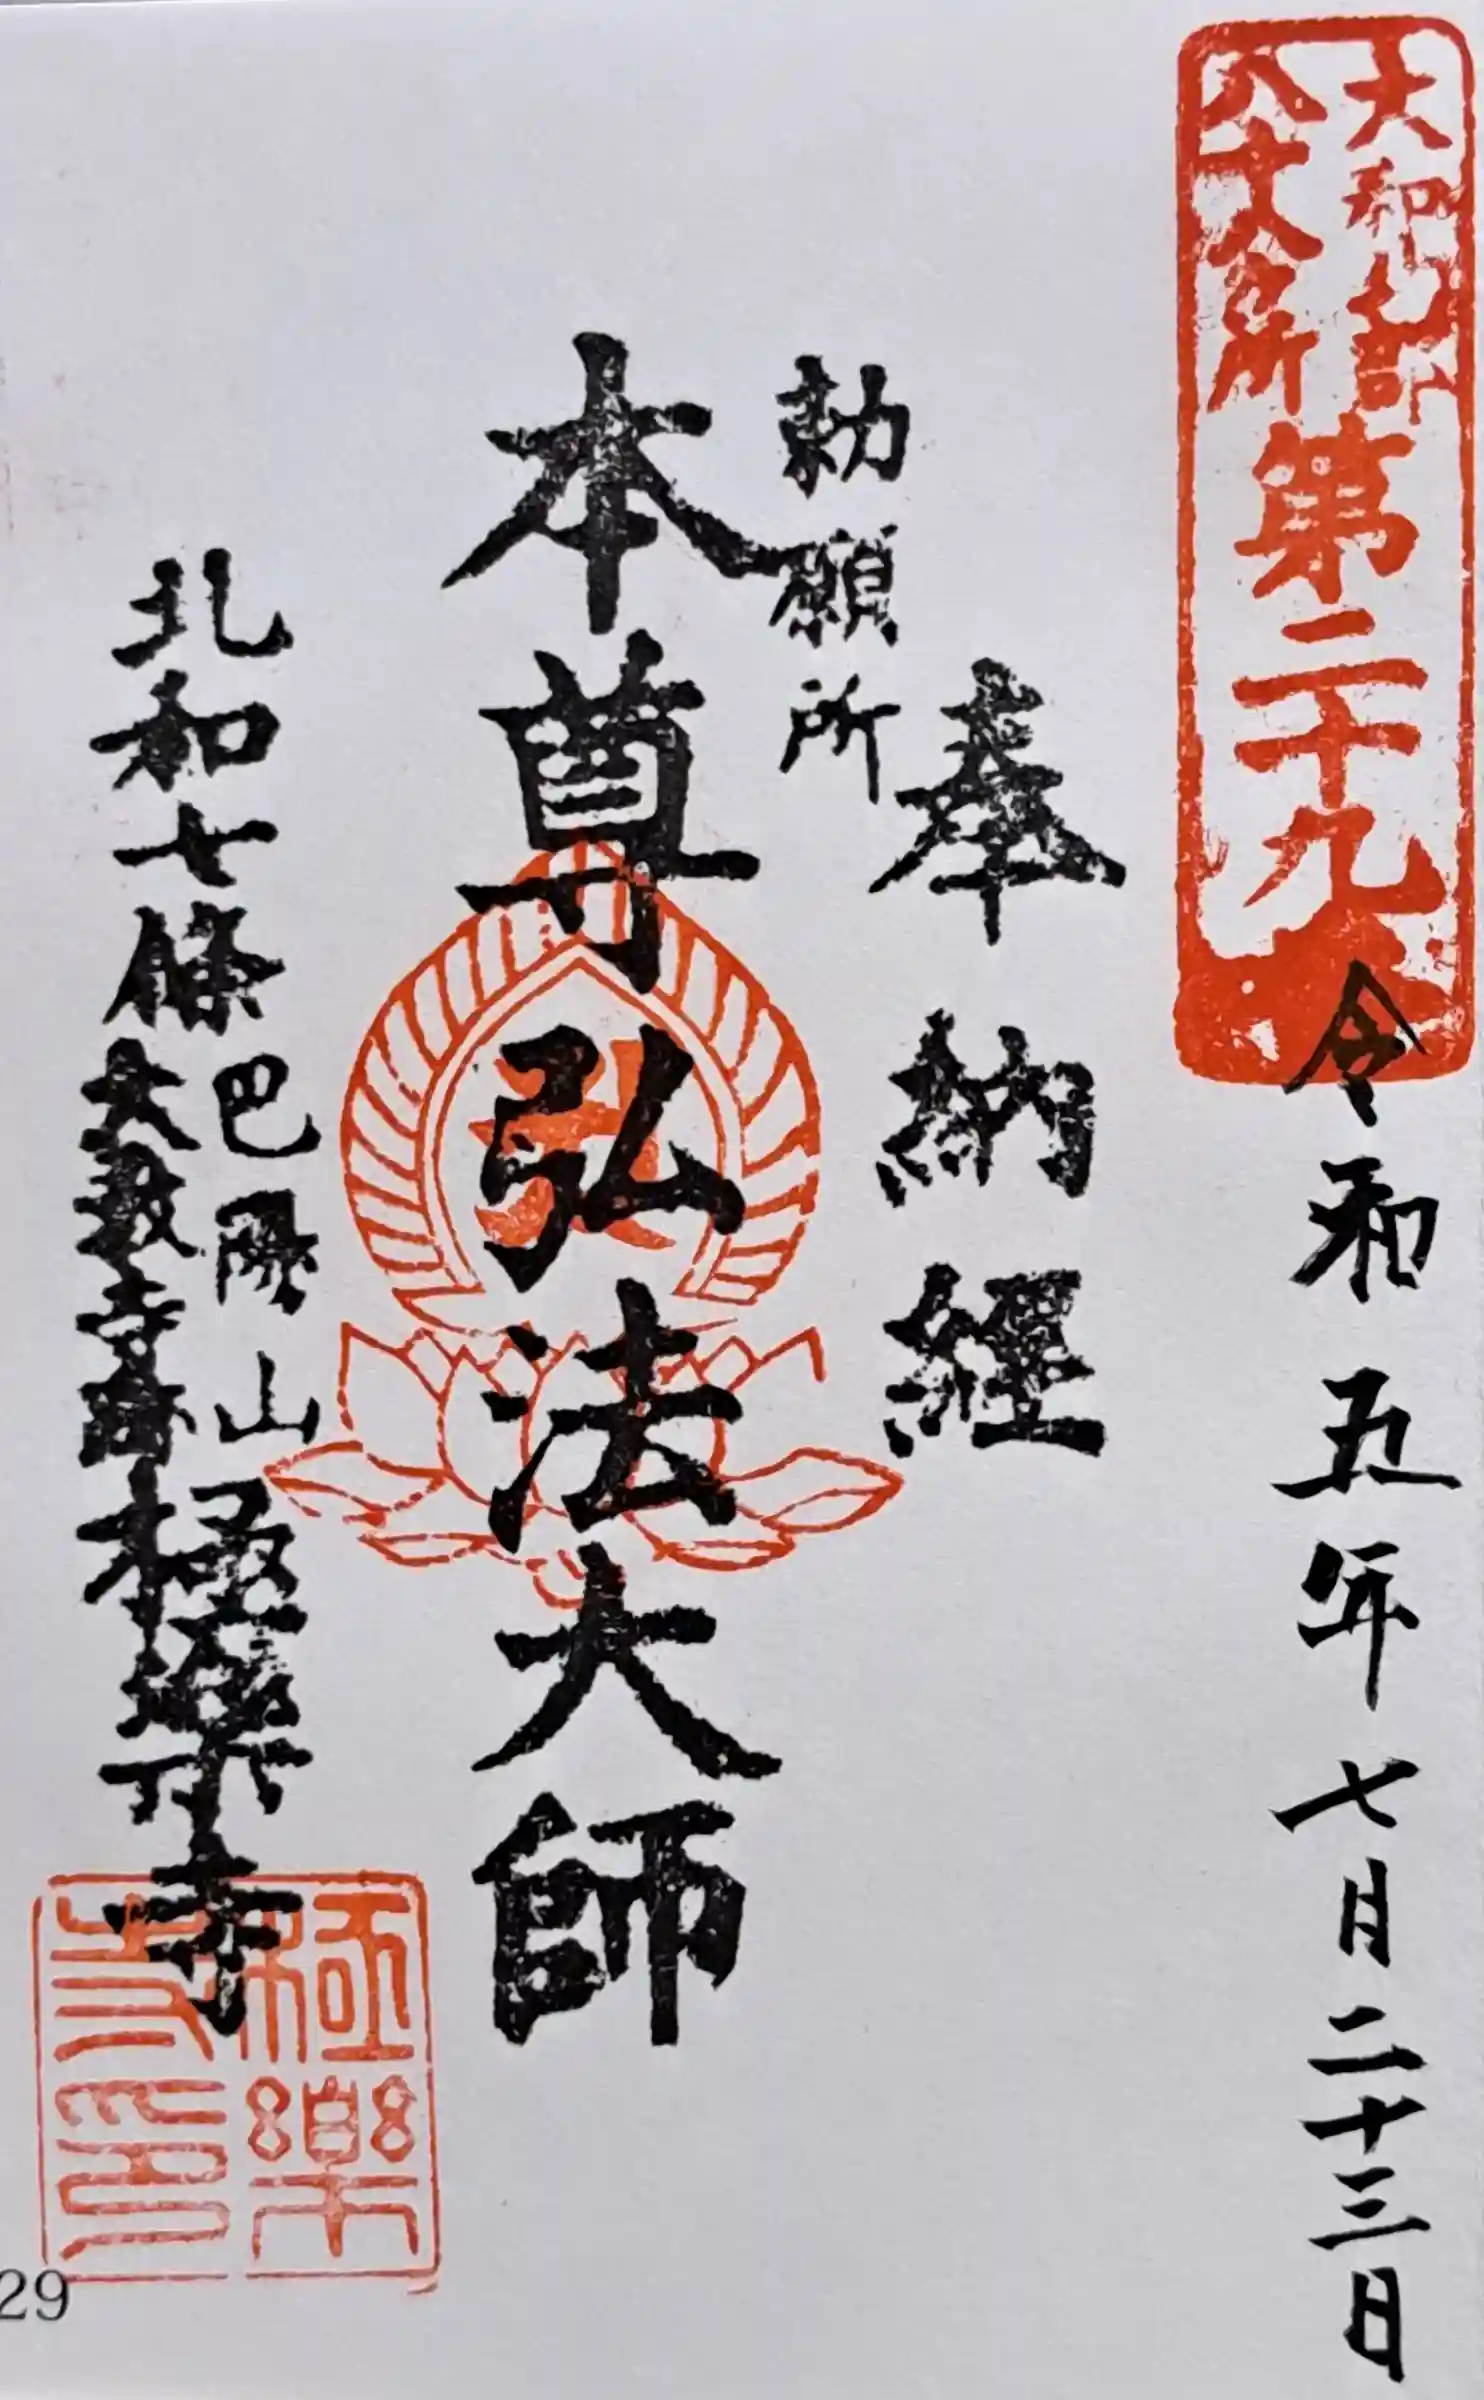 大和北部
八十八ヶ所
第二十九
令和五年七月二十三日
奉納經
勅願所
本尊弘法大師
北和七條
巴陵山
大教寺
極樂寺
極樂
寺印
29